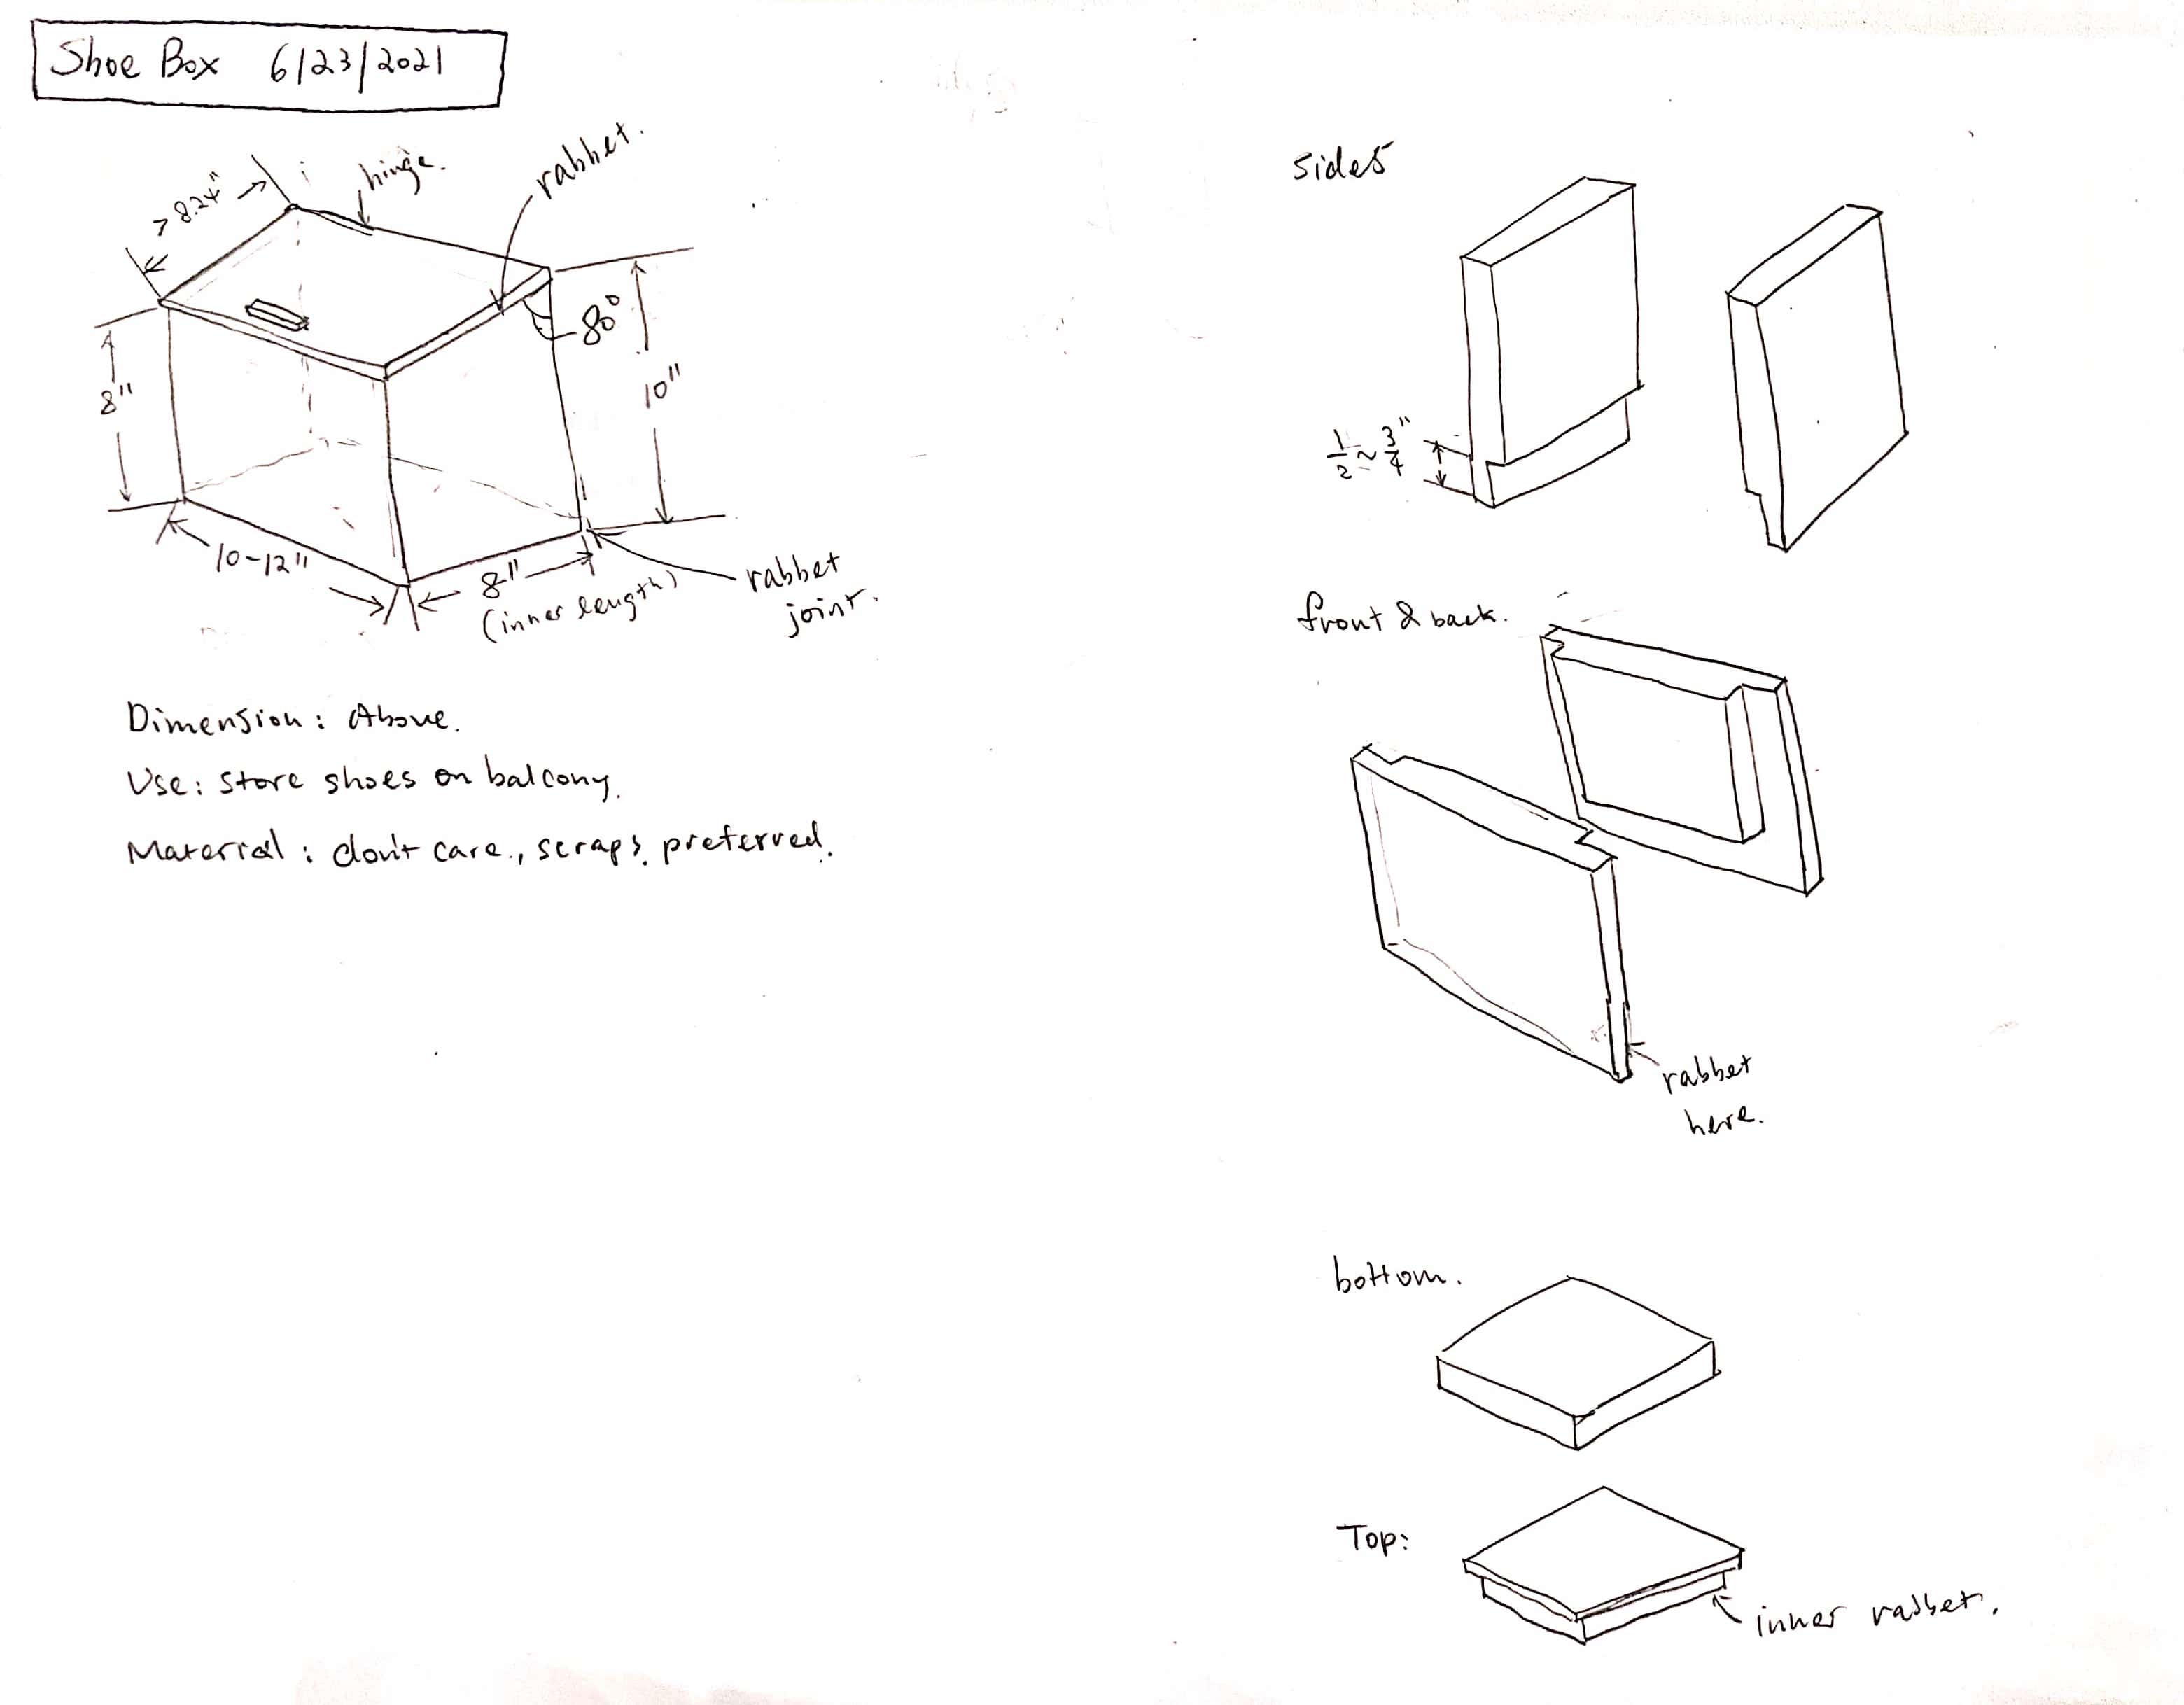 Shoe Box 6/23/2021
> 8.24"
hinge.
rabbet.
80°
8"
10"
10-12"
8"
(inner length)
rabbet
joint.
Dimension: Above.
Use: store shoes on balcony.
Material: don't care., scraps preferred.
sides
1/2 ~ 3/4"
front & back.
rabbet
here.
bottom.
Top:
inner rabbet.